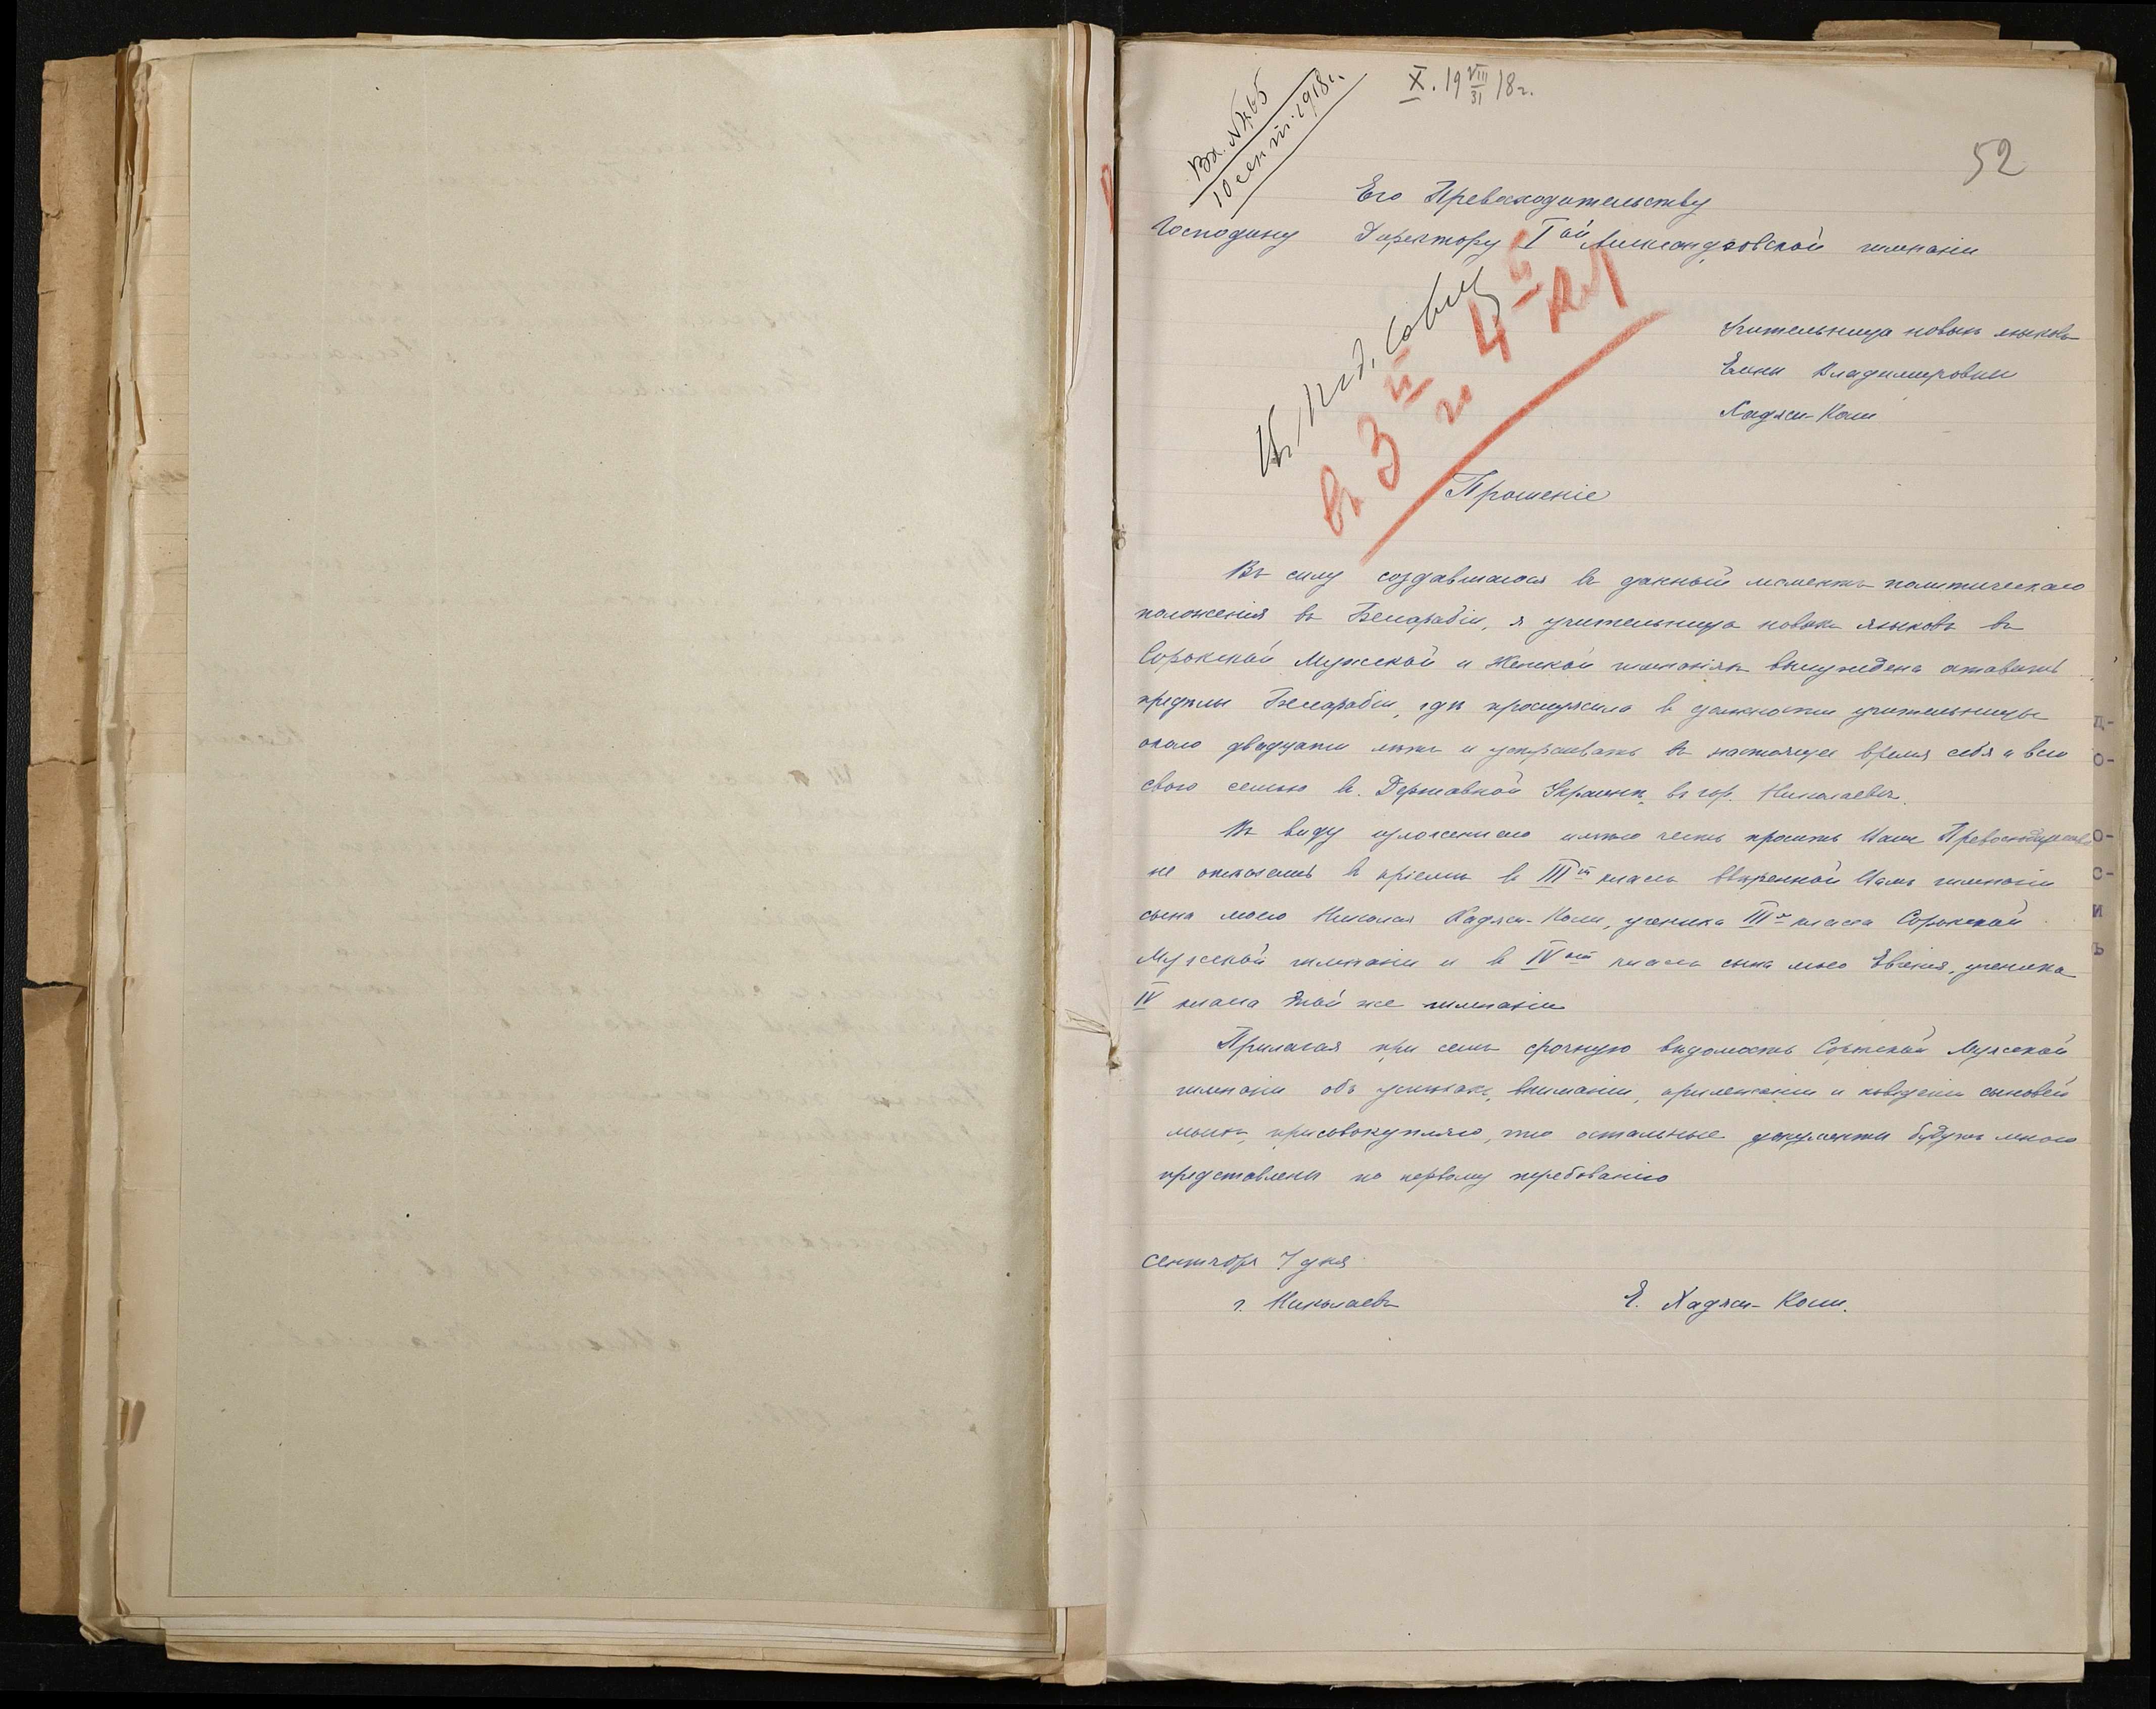 X. 19 VIII/31 18 г.
Вх. № 465
10 сен VIII. 1918 г.
52
Его Превосходительству
Господину Директору Iой Александровской гимназіи
Въ Пед. Совѣтъ
въ 3й и 4й кл
Учительница новыхъ языковъ
Елены Владимировны
Хаджи-Коли
Прошеніе
Въ силу создавшагося въ данный моментъ политическаго
положенія въ Бессарабіи, я учительница новыхъ языковъ въ
Сорокской Мужской и Женской гимназіяхъ вынуждена оставить
предѣлы Бессарабіи, гдѣ прослужила въ должности учительницы
около двадцати лѣтъ и устраивать въ настоящее время себя и всю
свою семью въ Державной Украинѣ, въ гор. Николаевѣ.
Въ виду изложеннаго имѣю честь просить Ваше Превосходительство
не отказать въ пріемѣ въ IIIй классъ ввѣренной Вамъ гимназіи
сына моего Николая Хаджи-Коли, ученика IIIго класса Сорокской
Мужской гимназіи и въ IVый классъ сына моего Евгенія, ученика
IV класса той же гимназіи
Прилагая при семъ срочную вѣдомость Сорокской Мужской
гимназіи объ успѣхахъ, вниманіи, прилежаніи и поведеніи сыновей
моихъ, присовокупляю, что остальные документы будутъ мною
представлены по первому требованію
Сентября 7 дня
г. Николаевъ
Е. Хаджи-Коли.